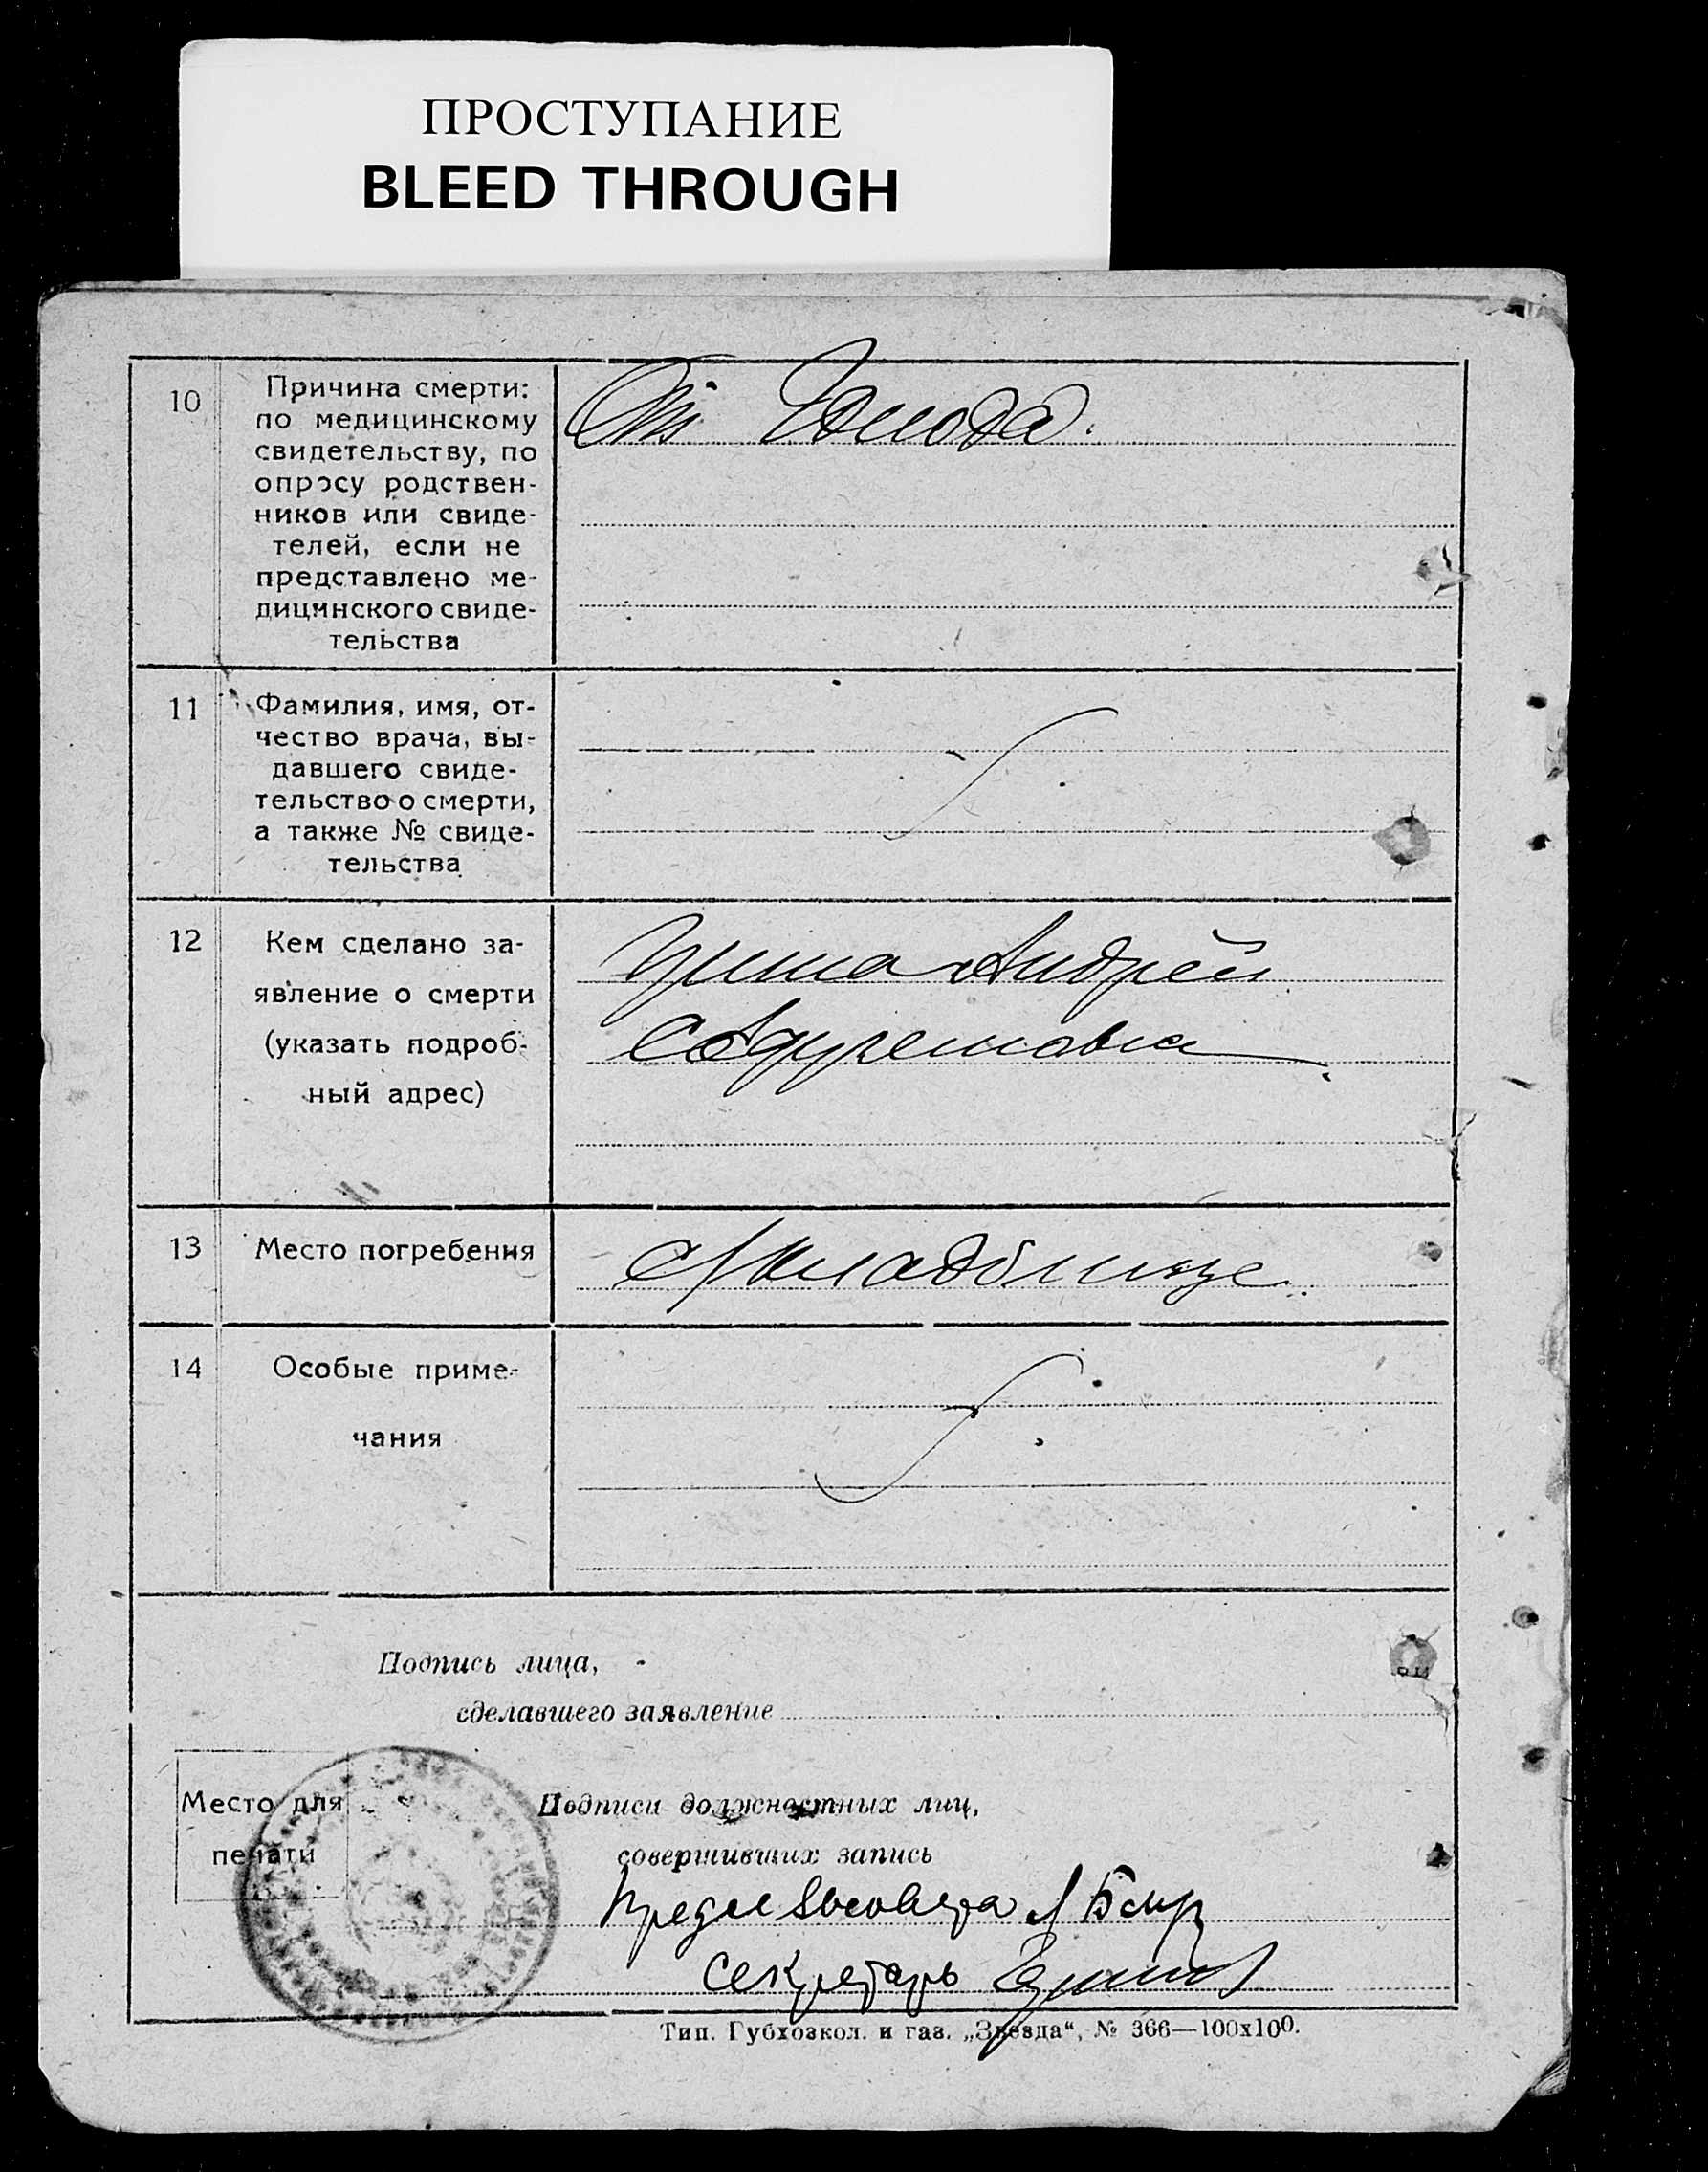 ПРОСТУПАНИЕ
BLEED THROUGH
10
Причина смерти:
по медицинскому
свидетельству, по
опросу родствен-
ников или свиде-
телей, если не
представлено ме-
дицинского свиде-
тельства
От Голода.
11
Фамилия, имя, от-
чество врача, вы-
давшего свиде-
тельство о смерти,
а также № свиде-
тельства
12
Кем сделано за-
явление о смерти
(указать подроб-
ный адрес)
Андрей
13
Место погребения
Кладбище
14
Особые приме-
чания
Подпись лица,
сделавшего заявление
Место для
печати
Подписи должностных лиц,
совершивших запись
секретарь
Тип. Губхозкол. и газ. „Звезда“, № 366—100х100.